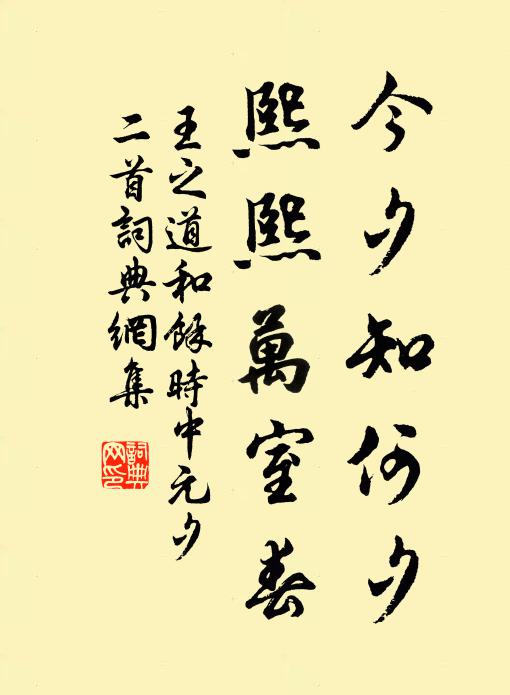 今夕知何夕
熙熙萬室春
王之道和餘時中元夕
二首詞典網集
詞典
网印